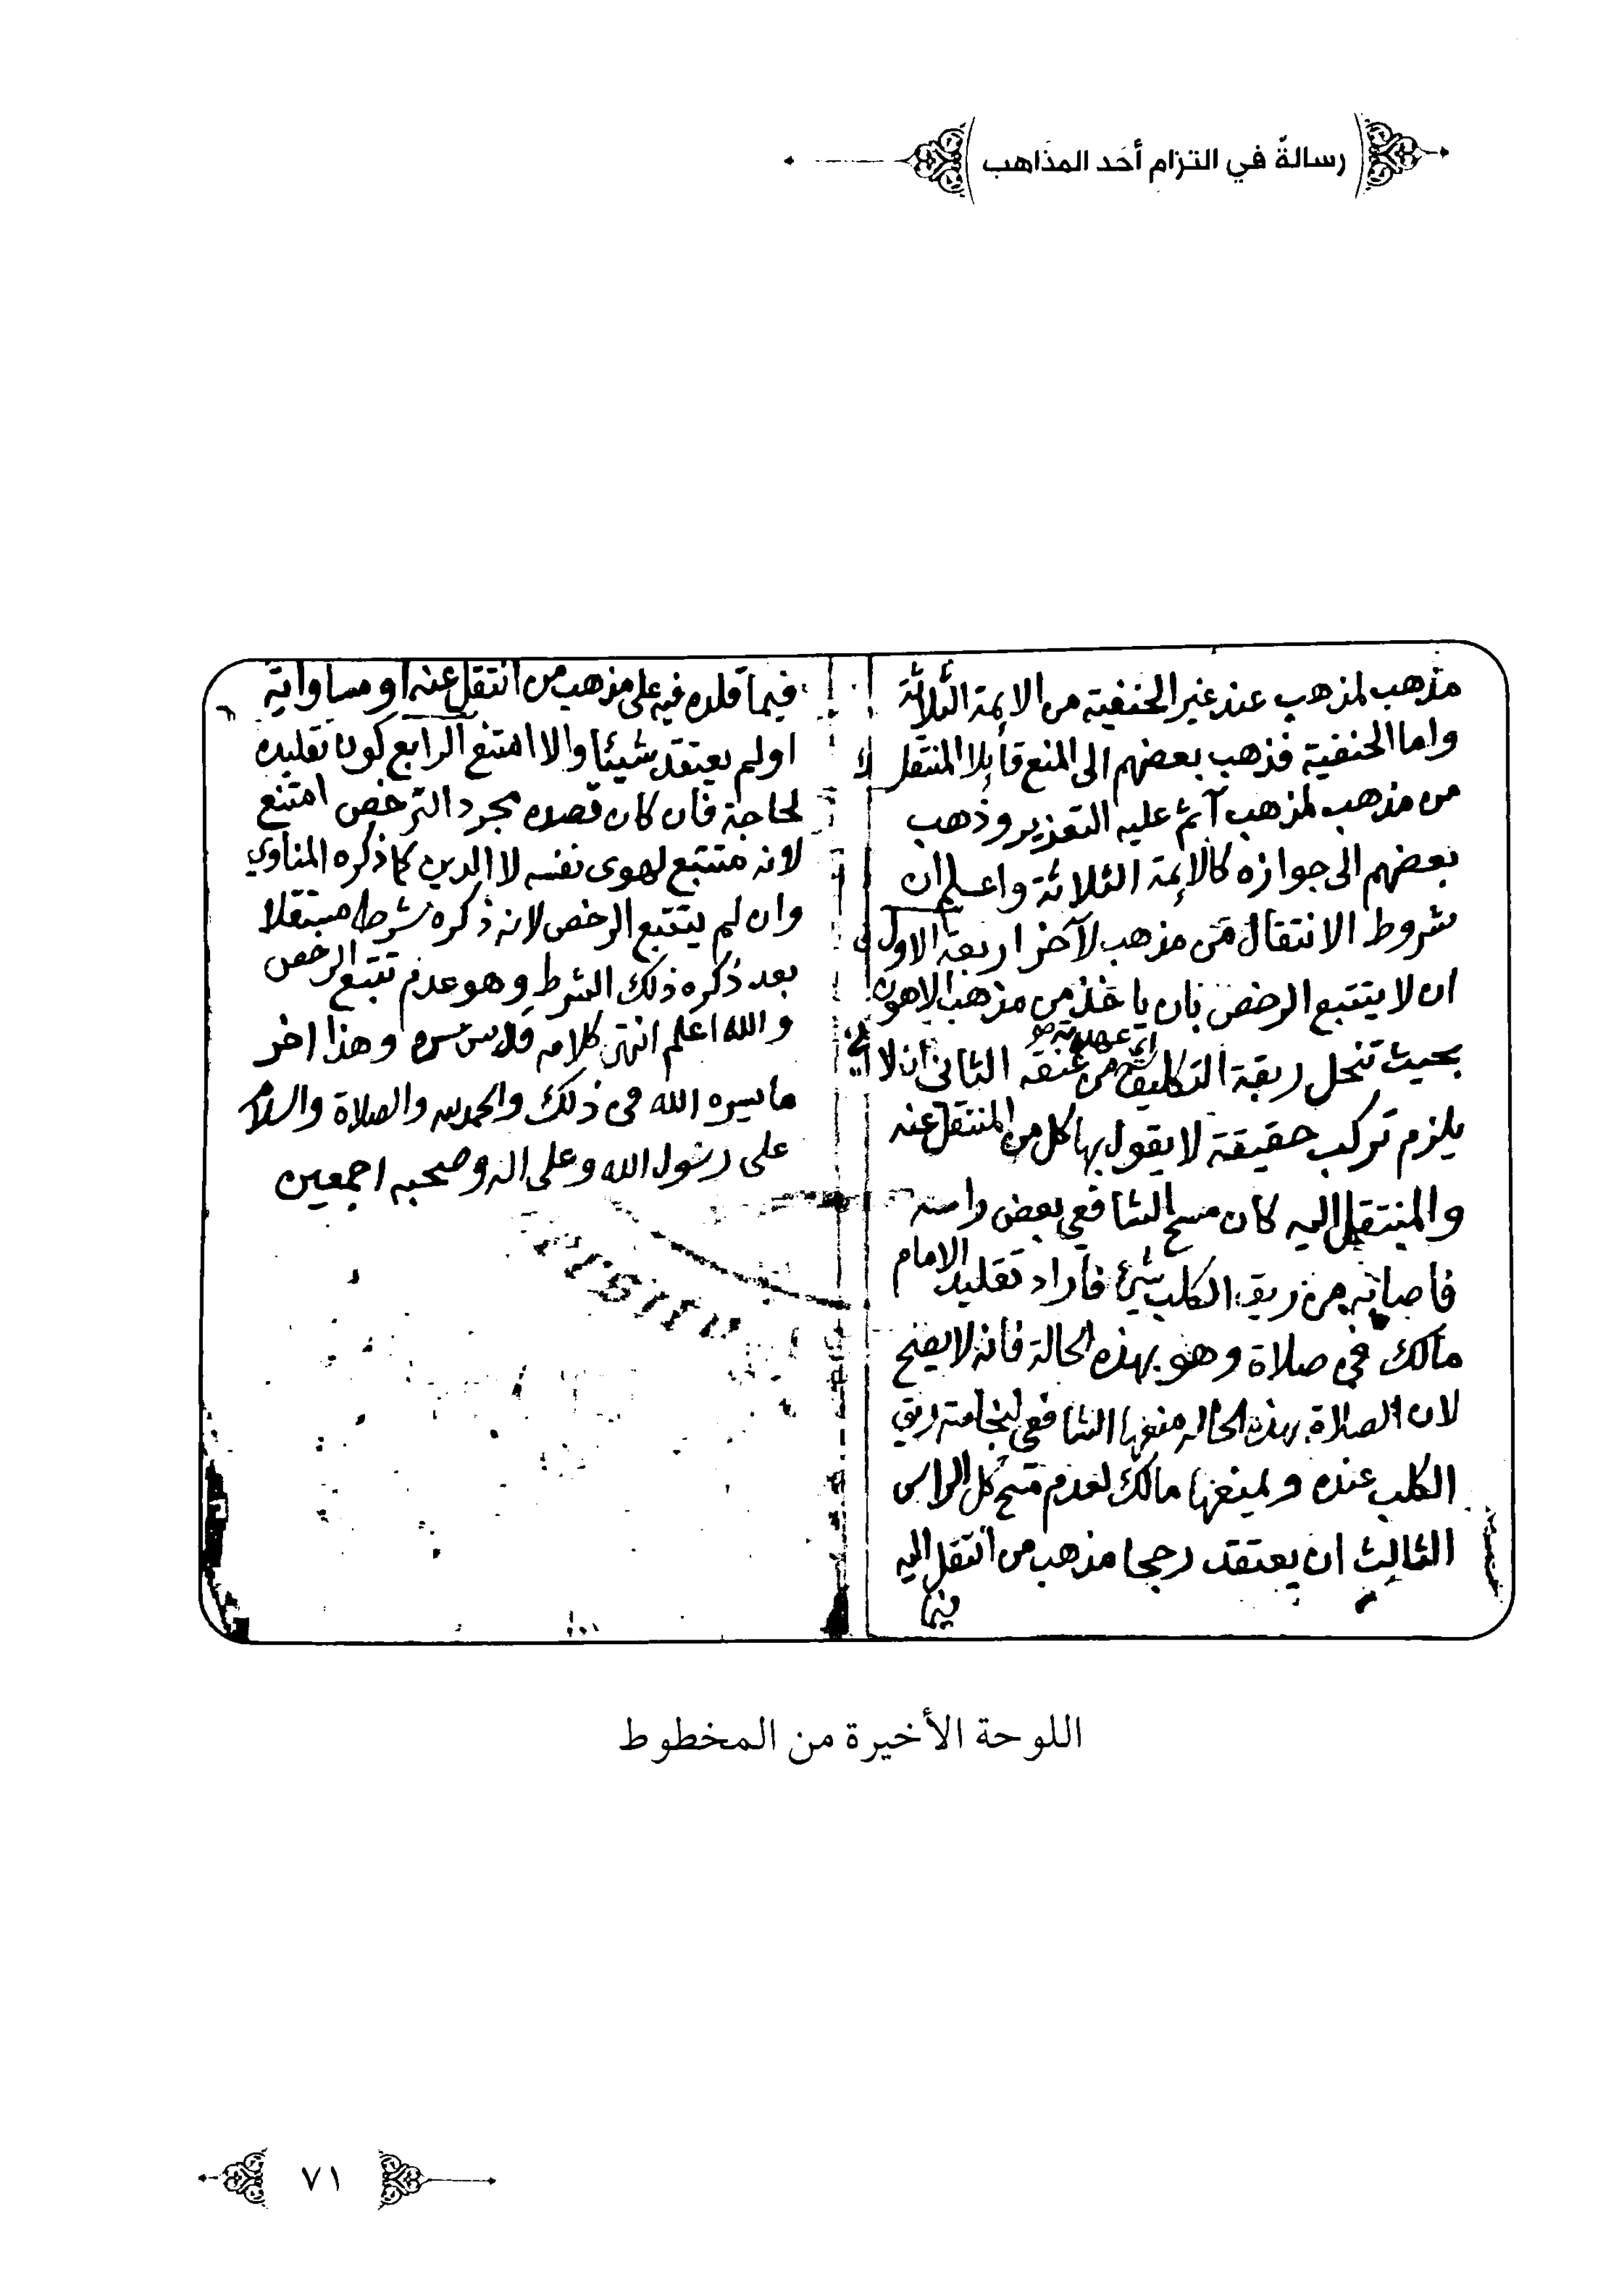 رسالةٌ في التزام أحَد المذَاهب
مذهب لمذهب عند غير الحنفية من الايمة الثلاثة
واما الحنفية فذهب بعضهم الى المنع قايلا المنتقل
من مذهب لمذهب آثم عليه التعزير وذهب
بعضهم الى جوازه كالايمة الثلاثة واعلم ان
شروط الانتقال من مذهب لآخر اربعة الاول
ان لا يتتبع الرخص بان ياخذ من مذهب الاهون
بحيث تنحل ربقة التكليف من عنقه الثاني ان لا
يلزم تركب حقيقة لا يقول بها كل من المنتقل عنه
والمنتقل اليه كان مسح الشافعي بعض راسه
فاصابه من ريق الكلب شئ فاراد تقليد الامام
مالك في صلاة وهو بهذه الحالة فانه لا يصح
لان الصلاة بهذه الحالة منعها الشافعي لنجاسة ريق
الكلب عنده ويمنعها مالك لعدم مسح كل الراس
الثالث ان يعتقد رجحا مذهب من انتقل اليه
فيما
فيما قلده فيه على مذهب من انتقل عنه او مساواته
او لم يعتقد شيئا والا امتنع الرابع كون تقليده
لحاجة فان كان قصده مجرد الترخص امتنع
لانه متتبع لهوى نفسه لا الدين كما ذكره المناوي
وان لم يتتبع الرخص لانه ذكره شرطا مستقلا
بعد ذكره ذلك الشرط وهو عدم تتبع الرخص
والله اعلم انتهى كلامه قدس سره وهذا اخر
ما يسره الله في ذلك والحمد لله والصلاة والسلام
على رسول الله وعلى اله وصحبه اجمعين
اللوحة الأخيرة من المخطوط
٧١